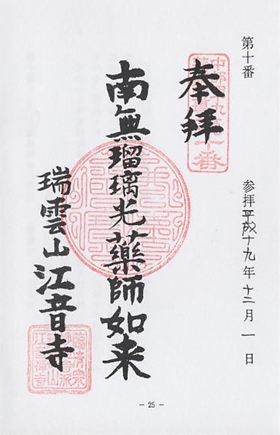 第十番
奉拝
南無瑠璃光薬師如来
瑞雲山江音寺
参拝平成十九年十二月一日
- 25 -